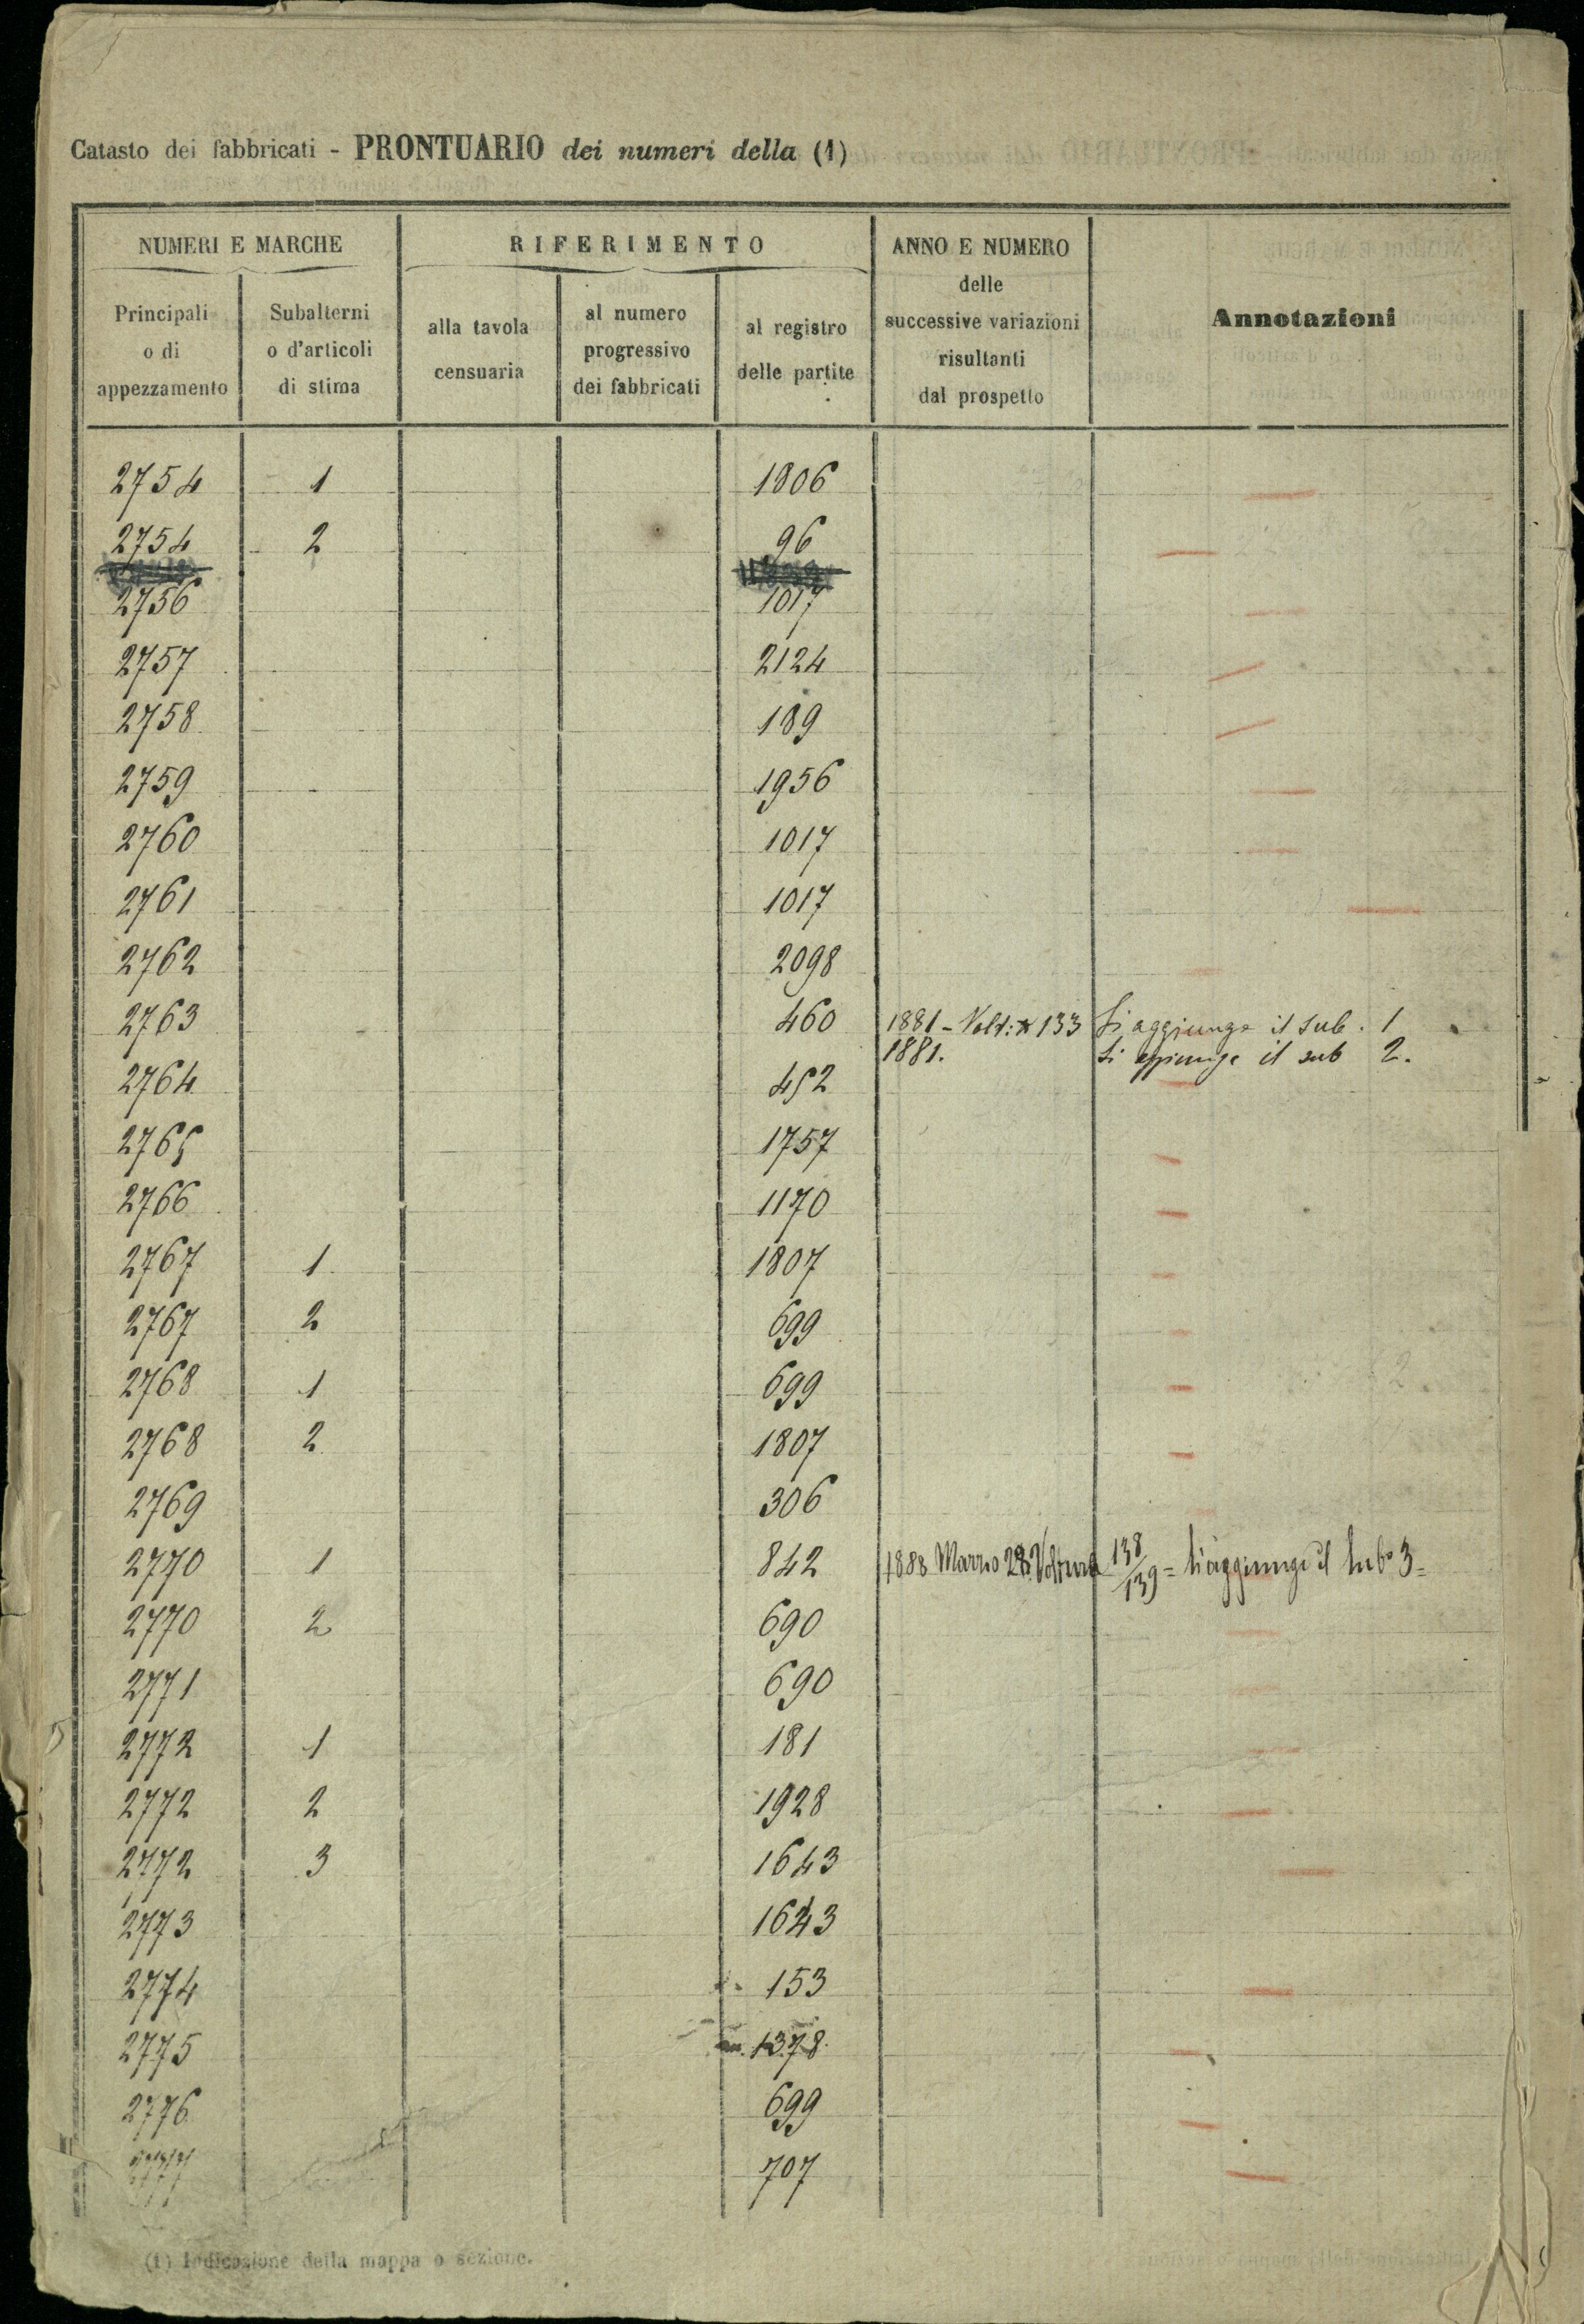 Catasto dei fabbricati - PRONTUARIO dei numeri della (1)
NUMERI E MARCHE
RIFERIMENTO
ANNO E NUMERO
delle
successive variazioni
risultanti
dal prospetto
Annotazioni
Principali
o di
appezzamento
Subalterni
o d'articoli
di stima
alla tavola
censuaria
al numero
progressivo
dei fabbricati
al registro
delle partite
2754 1 1806
2754 2 96
2756 1017
2757 2124
2758 189
2759 1956
2760 1017
2761 1017
2762 2098
2763 460 1881 - Volt: 133 Si aggiunge il sub. 1
1881. Si aggiunge il sub 2.
2764 452
2765 1757
2766 1170
2767 1 1807
2767 2 699
2768 1 699
2768 2 1807
2769 306
2770 1 842 1888 Marzo 28 Voltura 138/139 = Si aggiunge il sub 3=
2770 2 690
2771 690
2772 1 181
2772 2 1928
2772 3 1643
2773 1643
2774 153
2775 1378
2776 699
2777 707
(1) Indicazione della mappa o sezione.